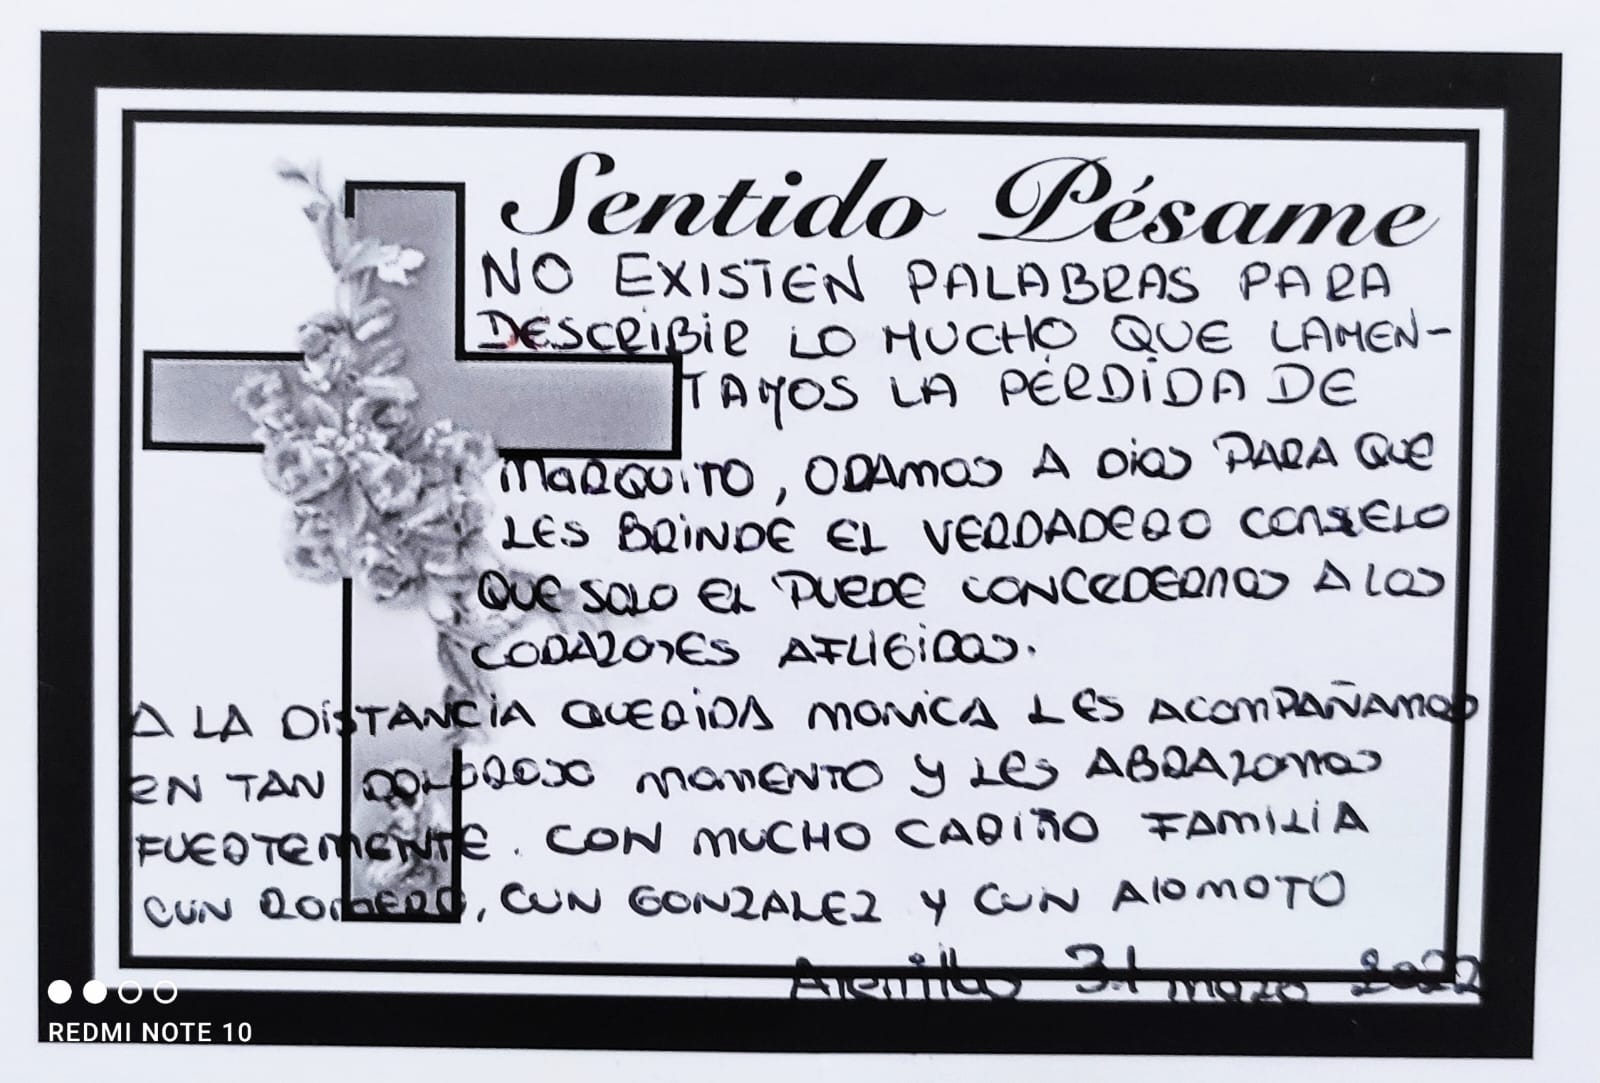 Sentido Pésame
NO EXISTEN PALABRAS PARA
DESCRIBIR LO MUCHO QUE LAMEN-
TAMOS LA PÉRDIDA DE
MARQUITO, ORAMOS A DIOS PARA QUE
LES BRINDE EL VERDADERO CONSUELO
QUE SOLO EL PUEDE CONCEDERNOS A LOS
CORAZONES AFLIGIDOS.
A LA DISTANCIA QUERIDA MONICA LES ACOMPAÑAMOS
EN TAN DOLOROSO MOMENTO Y LES ABRAZAMOS
FUERTEMENTE. CON MUCHO CARIÑO FAMILIA
CUN ROMERO, CUN GONZALEZ Y CUN
31 2022
REDMI NOTE 10